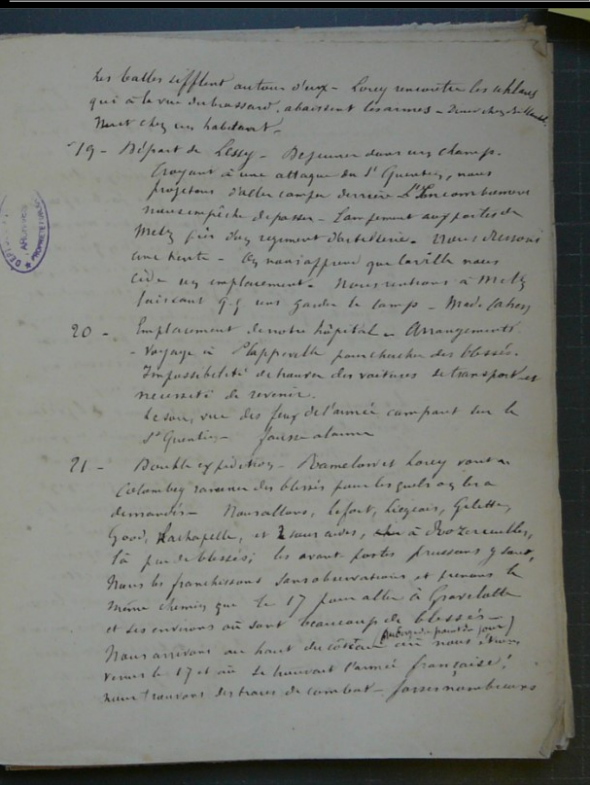 Les balles sifflent autour d'eux - Lorey rencontre les uhlans
qui à la vue du brassard, abaissent les armes -
Nuit chez un habitant -
19 - Départ de Lessy - Déjeuner dans un champ.
Croyant à une attaque du St Quentin, nous
projetons d'aller camper derrière L'encombrement
nous empêche de passer - Campement aux portes de
Metz près d'un régiment d'artillerie. Nous dressons
une tente - On nous apprend que la ville nous
cède un emplacement. Nous rentrons à Metz
laissant q.q. uns garder le camp -
20 - Emplacement de notre hôpital - Arrangements.
- Voyage à Plappeville pour chercher des blessés.
Impossibilité de trouver des voitures de transport et
nécessité de revenir.
Le soir, vue des feux de l'armée campant sur le
St Quentin - Fausse alarme
21 - Double expédition - Bamelow et Lorey vont à
Colombey ramener des blessés pour lesquels on les a
demandés - Nous allons, Lefort, Liégeois, Gillette,
Good, Lachapelle, et 2 sous aides, à Rozereuilles,
là pas de blessés; les avant postes prussiens y sont,
Nous les franchissons sans observations et prenons le
même chemin que le 17 pour aller à Gravelotte
et ses environs où sont beaucoup de blessés -
Nous arrivons au haut du côteau (Auberge du point du jour) où nous étions
venus le 17 et où se trouvait l'armée française;
nous trouvons des traces de combat - fosses nombreuses
DÉP
ARCHIVES
PROPRIÉTÉ PUBLIQUE